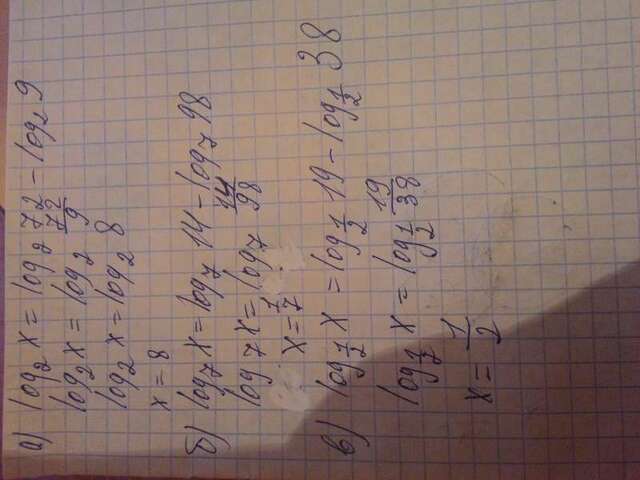 а) log₂ x = log₂ 72 - log₂ 9
log₂ x = log₂ 72/9
log₂ x = log₂ 8
x = 8
б) log₇ x = log₇ 14 - log₇ 98
log 7 x = log₇ 14/98
x = 1/7
в) log 1/2 x = log 1/2 19 - log 1/2 38
log 1/2 x = log 1/2 19/38
x = 1/2